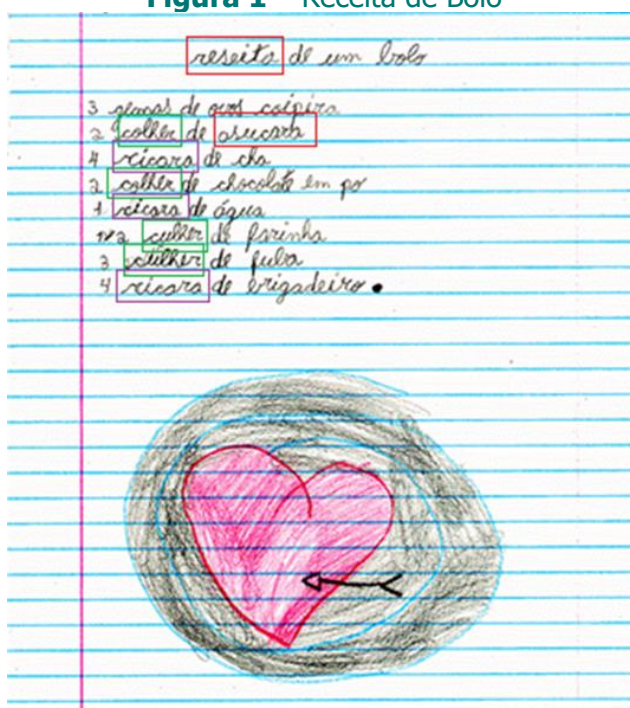 Figura 1 – Receita de Bolo
reseita de um bolo
3 gemas de ovos caipira
2 colher de asucara
4 xicara de cha
2 colher de chocolate em po
1 xicara de água
culher de farinha
3 culher de fuba
4 xicara de brigadeiro.